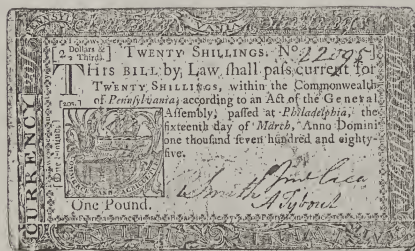 PENNSYLV
2 Dollars &
2 Thirds.
TWENTY SHILLINGS. No 22095
THIS BILL by Law shall pass current for
TWENTY SHILLINGS, within the Commonwealth
of Pennsylvania; according to an Act of the General
20s.
Assembly, passed at Philadelphia, the
sixteenth day of March, Anno Domini
one thousand seven hundred and eighty-
five.
CURRENCY
One Pound.
Smith
A Tybout
One Pound.